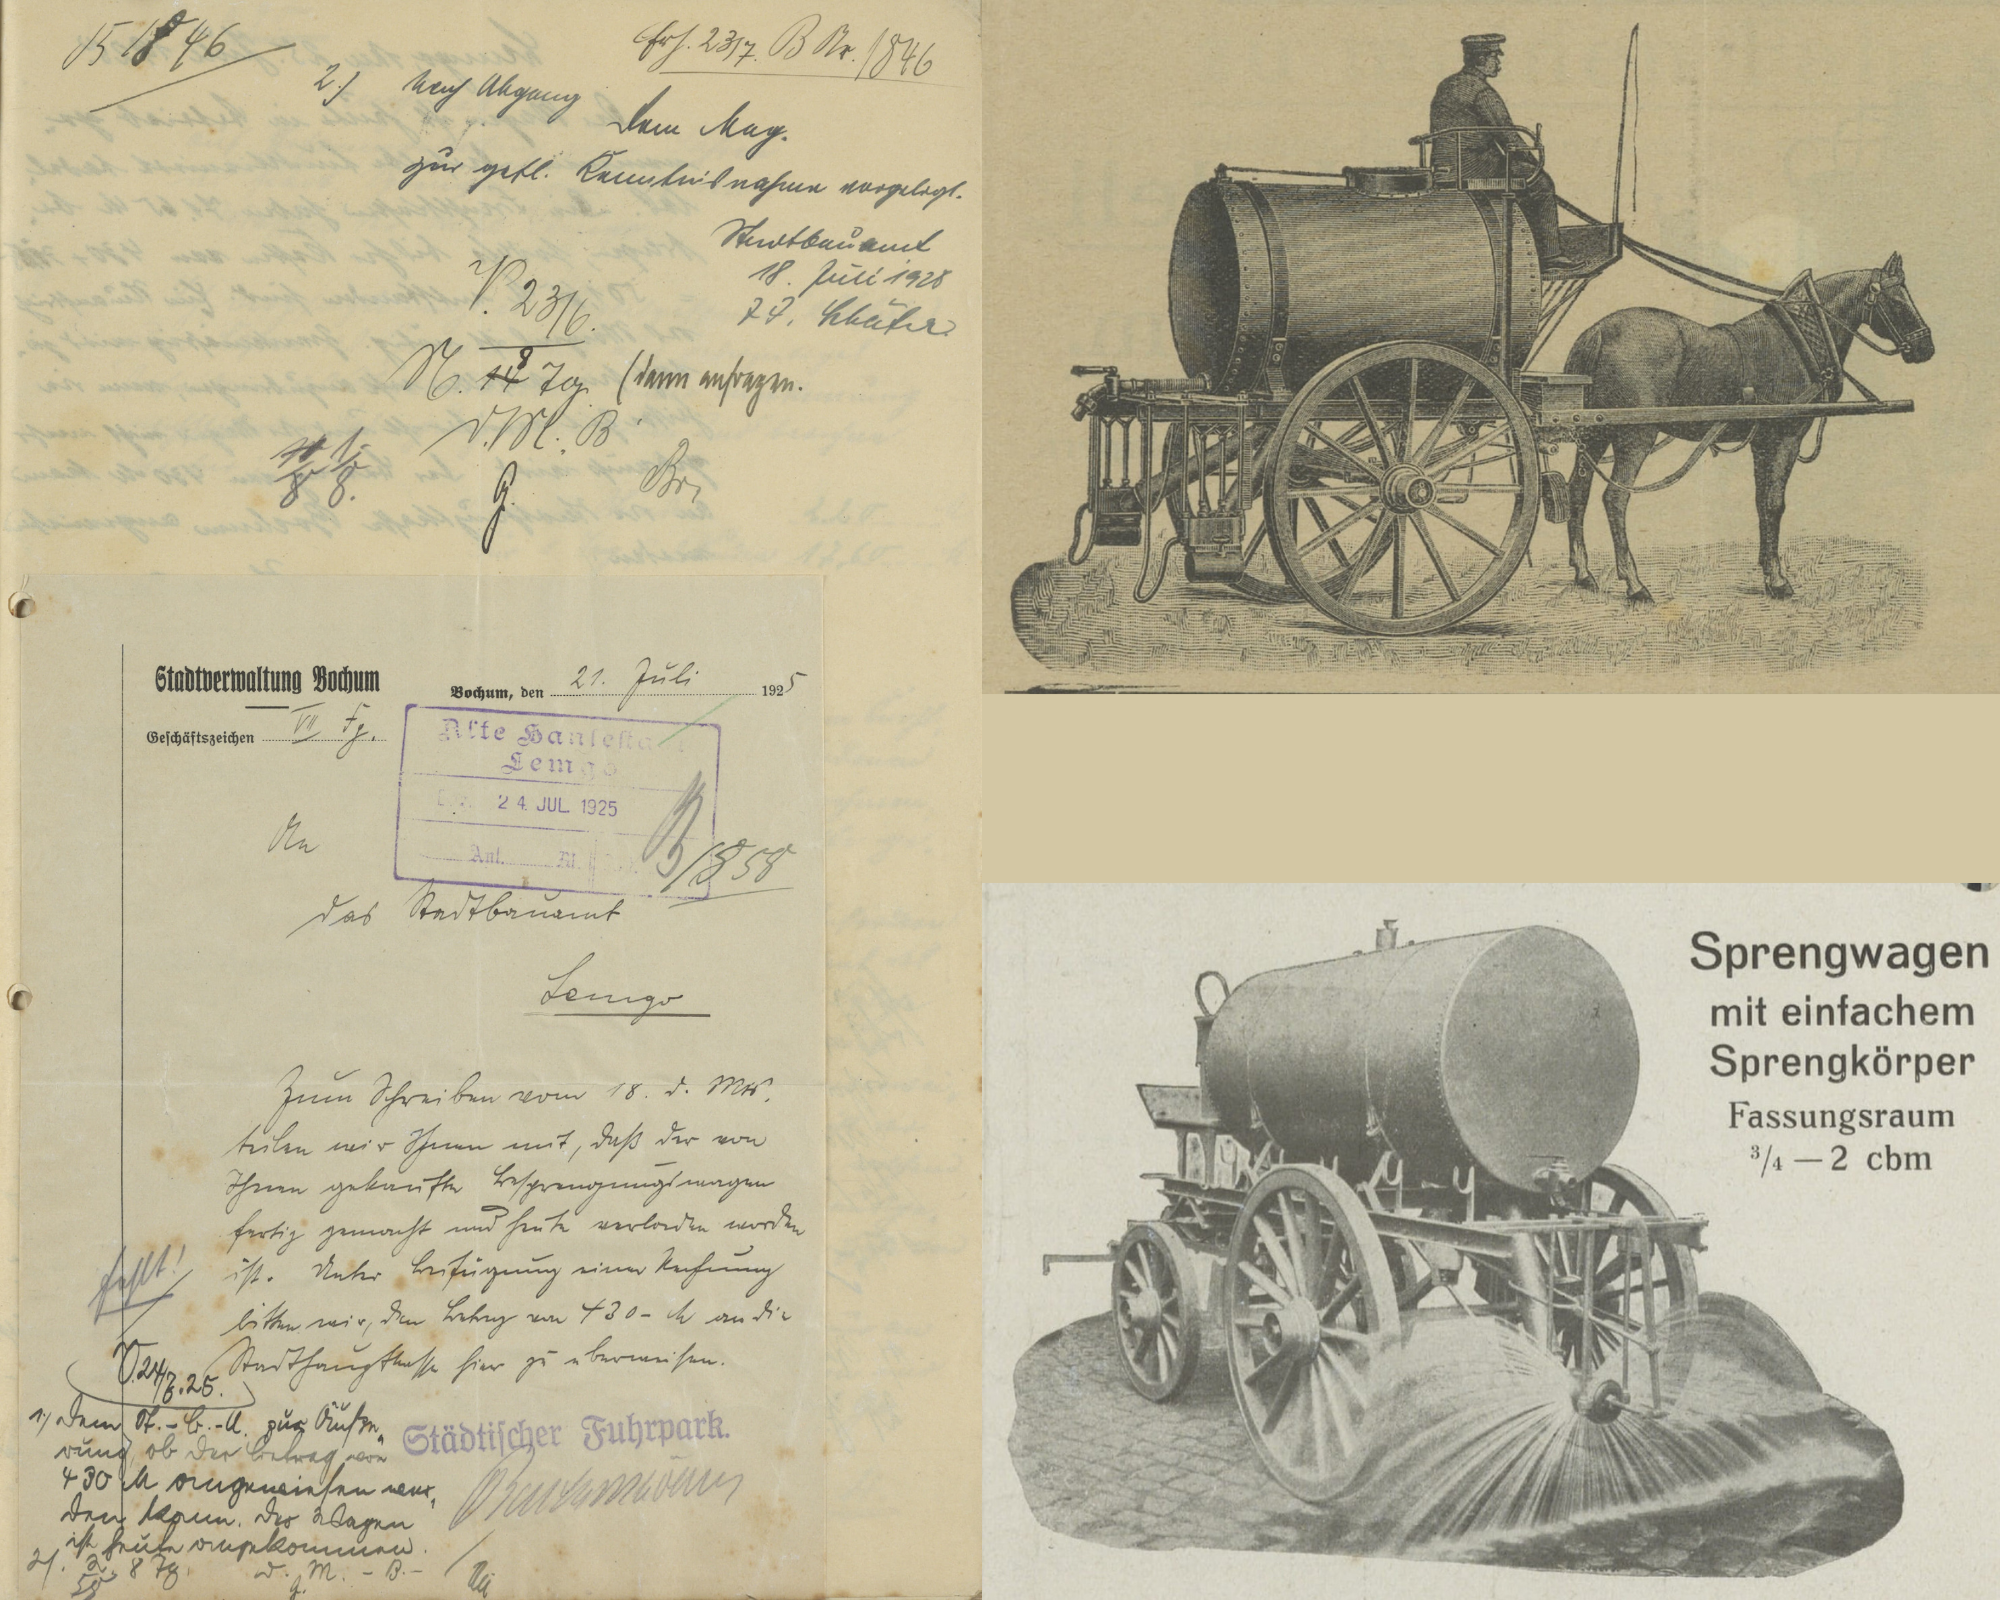 B 1846
Erh. 23/7. B Nr. 1846
2.) Nach Abgang
dem Mag.
zur gefl. Kenntnisnahme vorgelegt.
Stadtbauamt
18. Juli 1925
V. 23/6.
N. 8 Tg. (dann anfragen.
d. M. B
G.
Stadtverwaltung Bochum
Bochum, den 21. Juli 1925
Geschäftszeichen VII Fg.
Alte Hansestadt
Lemgo
24. JUL. 1925
Anl.
B 1858
An
das Stadtbauamt
Lemgo
Zum Schreiben vom 18. d. Mts.
teilen wir Ihnen mit, daß der von
Ihnen gekaufte Besprengungswagen
fertig gemacht und heute verladen worden
ist. Unter Beifügung einer Rechnung
bitten wir, den Betrag von 430- M an die
Stadthauptkasse hier zu überweisen.
fehlt!
Städtischer Fuhrpark.
V. 24/7.25.
1) Dem St.-B.-A. zur Äuße-
rung, ob der Betrag von
430 M angewiesen wer-
den kann. Der Wagen
ist heute angekommen.
2). 8 Tg. d. M. - B.-
Sprengwagen
mit einfachem
Sprengkörper
Fassungsraum
³/₄ — 2 cbm